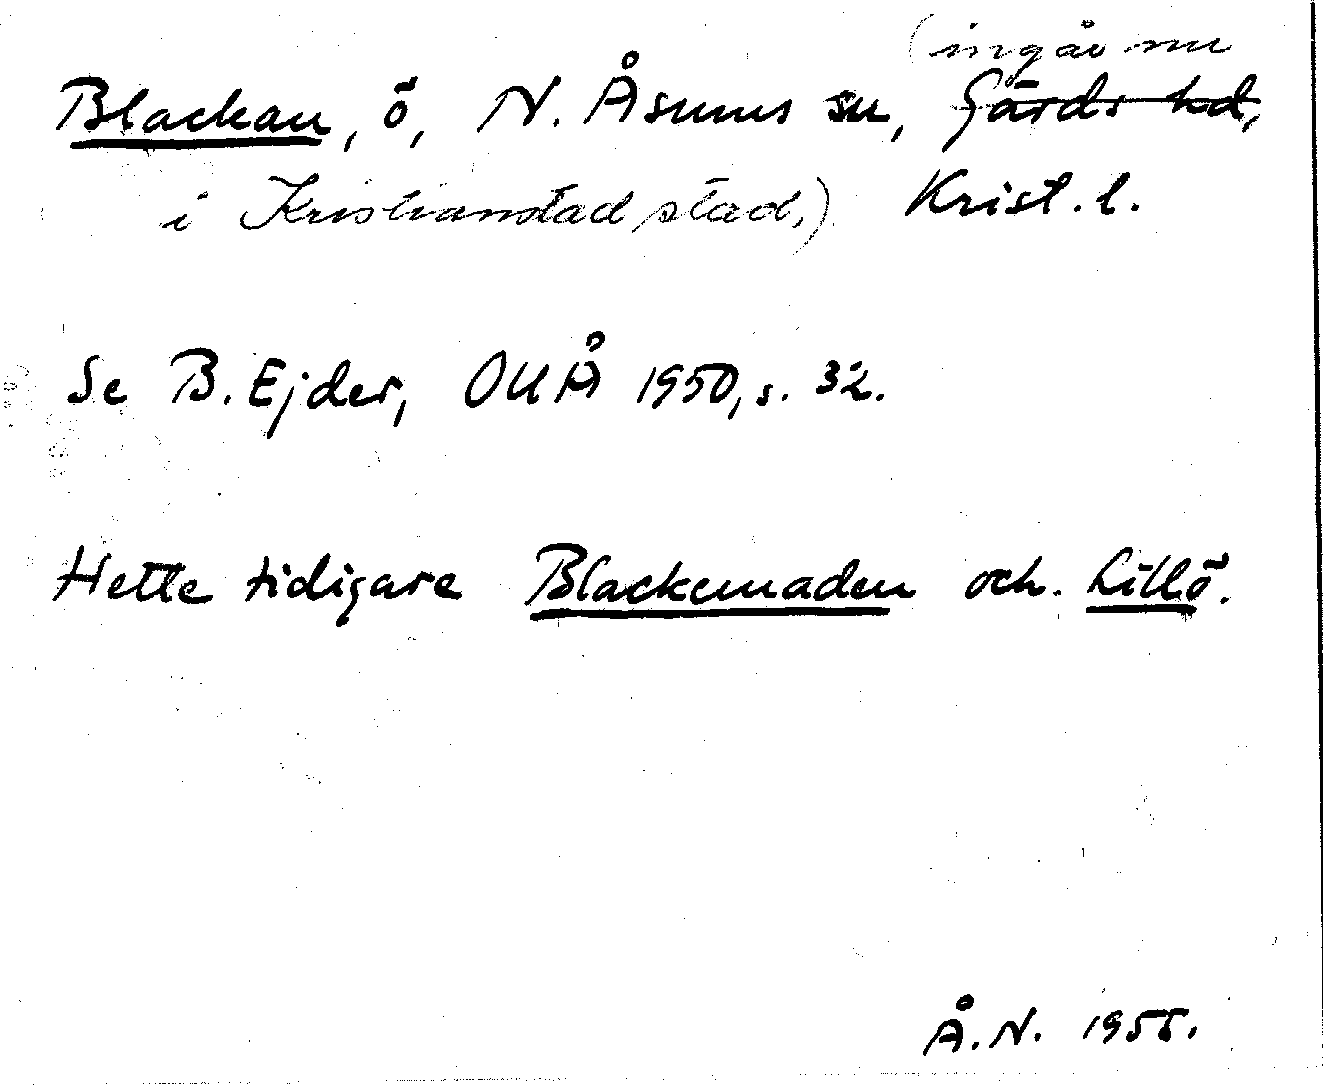 (ingår nu
Blackan, ö, N. Åsums sn, Gärds hd,
i Kristianstad stad,) Krist. l.
Se B. Ejder, OUÅ 1950, s. 32.
Hette tidigare Blackemaden och Lillö.
Å.N. 1955.